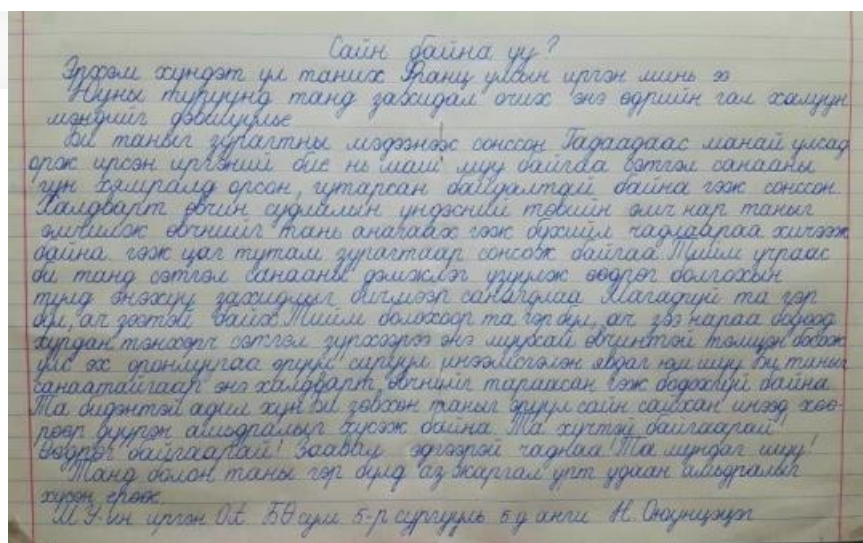 Сайн байна уу?
Эрхэм хүндэт үл таних Франц улсын иргэн минь ээ
Нуны түрүүнд танд захидал очих энэ өдрийн гал халуун
мэндийг дэвшүүлье
Би таныг зурагтны мэдээнээс сонссон Гадаадаас манай улсад
орж ирсэн иргэний бие нь маш муу байгаа сэтгэл санааны
гүн хямралд орсон, гутарсан байдалтай байна гэж сонссон
Халдварт өвчин судлалын үндэсний төвийн эмч нар таныг
эмчилж өвчнийг тань анагаах гэж бүхийл чадлаараа хичээж
байна гэж цаг тутам зурагтаар сонсож байгаа Тийм учраас
би танд сэтгэл санааны дэмжлэг үзүүлж өөдрөг болгохын
тулд энэхүү захидлыг бичмээр санагдлаа Магадгүй та гэр
бүл, ач зээтэй байх Тийм болохоор та гэр бүл, ач зээ нараа бодоод
хурдан тэнхэрч сэтгэл зүрхээрээ энэ муухай өвчинтэй тэмцэн босож
улс эх оронлуугаа эрүүл саруул инээмсэглэн явдаг юм шүү Би таныг
санаатайгаар энэ халдварт өвчнийг тараасан гэж бодохгүй байна
Та бидэнтэй адил хүн Би зөвхөн таныг эрүүл сайн сайхан инээд хөө-
рөөр дүүрэн амьдралыг хүсэж байна. Та хүчтэй байгаарай
өөдрөг байгаарай! Заавал эдгээрэй чаднаа! Та мундаг шүү!
Танд болон таны гэр бүлд аз жаргал урт удаан амьдралыг
хүсэн ерөөе
МУ-ын иргэн БӨ сум 5-р сургууль 5д анги Н. Оюунцэцэг